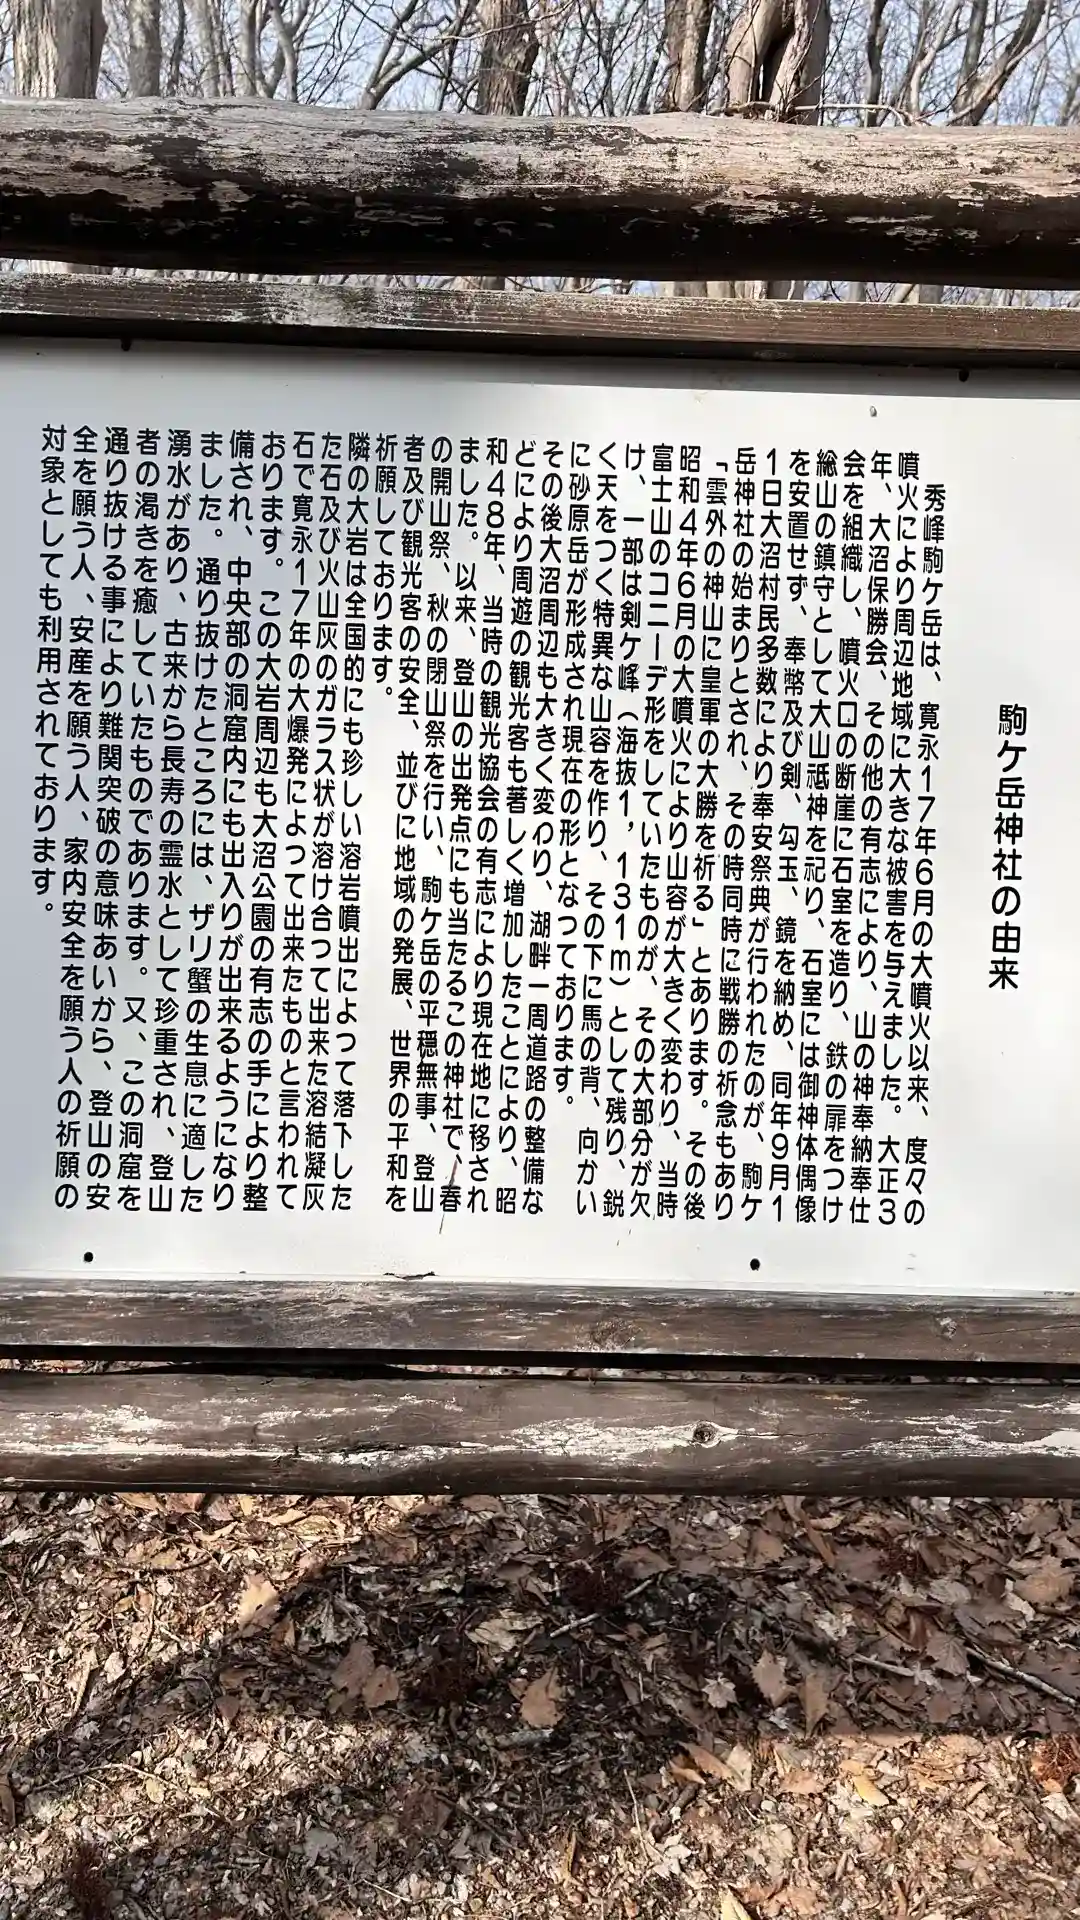 駒ケ岳神社の由来
秀峰駒ケ岳は、寛永17年6月の大噴火以来、度々の
噴火により周辺地域に大きな被害を与えました。大正3
年、大沼保勝会、その他の有志により、山の神奉納奉仕
会を組織し、噴火口の断崖に石室を造り、鉄の扉をつけ
総山の鎮守として大山祗神を祀り、石室には御神体偶像
を安置せず、奉幣及び剣、勾玉、鏡を納め、同年9月1
1日大沼村民多数により奉安祭典が行われたのが、駒ケ
岳神社の始まりとされ、その時同時に戦勝の祈念もあり
「雲外の神山に皇軍の大勝を祈る」とあります。その後
昭和4年6月の大噴火により山容が大きく変わり、当時
富士山のコニーデ形をしていたものが、その大部分が欠
け、一部は剣ケ峰（海抜1，131m）として残り、鋭
く天をつく特異な山容を作り、その下に馬の背、向かい
に砂原岳が形成され現在の形となつております。
その後大沼周辺も大きく変わり、湖畔一周道路の整備な
どにより周遊の観光客も著しく増加したことにより、昭
和48年、当時の観光協会の有志により現在地に移され
ました。以来、登山の出発点にも当たるこの神社で、春
の開山祭、秋の閉山祭を行い、駒ケ岳の平穏無事、登山
者及び観光客の安全、並びに地域の発展、世界の平和を
祈願しております。
隣の大岩は全国的にも珍しい溶岩噴出によつて落下した
た石及び火山灰のガラス状が溶け合つて出来た溶結凝灰
石で寛永17年の大爆発によつて出来たものと言われて
おります。この大岩周辺も大沼公園の有志の手により整
備され、中央部の洞窟内にも出入りが出来るようになり
ました。通り抜けたところには、ザリ蟹の生息に適した
湧水があり、古来から長寿の霊水として珍重され、登山
者の渇きを癒していたものであります。又、この洞窟を
通り抜ける事により難関突破の意味あいから、登山の安
全を願う人、安産を願う人、家内安全を願う人の祈願の
対象としても利用されております。